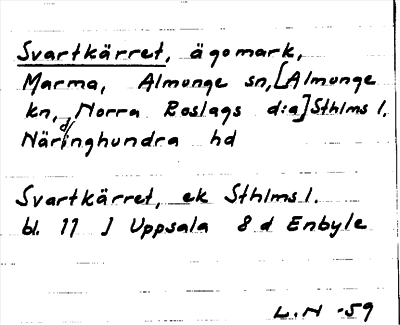 Svartkärret, ägomark,
Marma, Almunge sn, [Almunge
kn, Norra Roslags d:a] Sthlms l,
Närdinghundra hd
Svartkärret, ek Sthlms l.
bl. 11 I Uppsala 8 d Enbyle
L.N -59